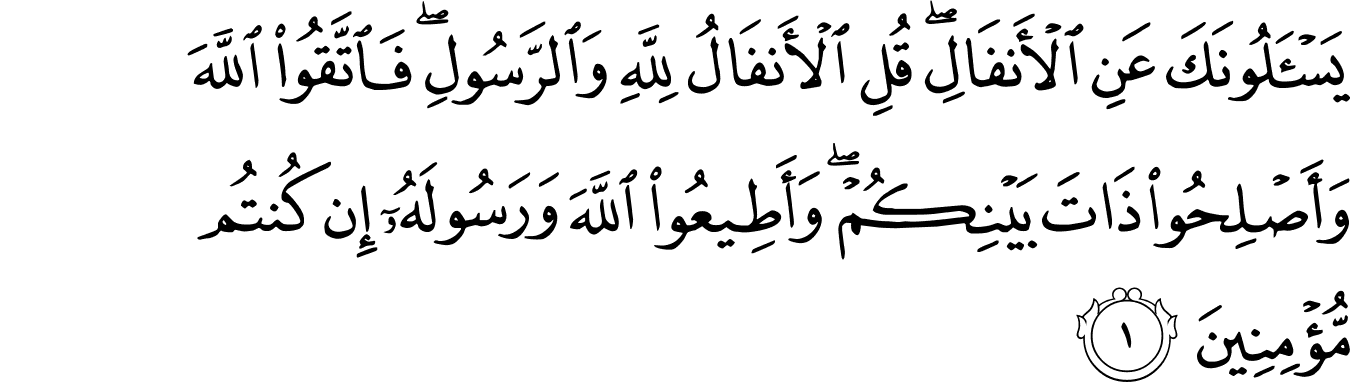 يَسْـَٔلُونَكَ عَنِ ٱلْأَنفَالِ ۖ قُلِ ٱلْأَنفَالُ لِلَّهِ وَٱلرَّسُولِ ۖ فَٱتَّقُوا۟ ٱللَّهَ
وَأَصْلِحُوا۟ ذَاتَ بَيْنِكُمْ ۖ وَأَطِيعُوا۟ ٱللَّهَ وَرَسُولَهُۥٓ إِن كُنتُم
مُّؤْمِنِينَ ١